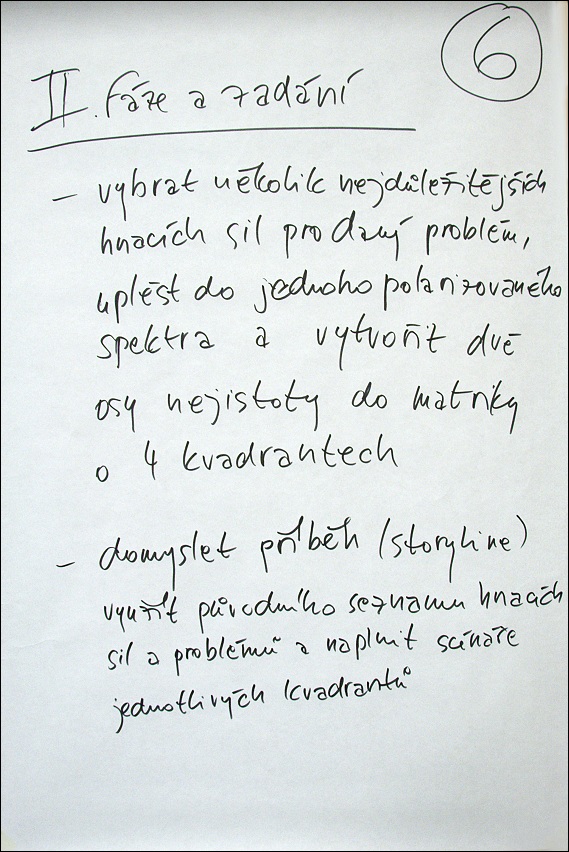 6
II. fáze a zadání
– vybrat několik nejdůležitějších
hnacích sil pro daný problém,
uplést do jednoho polarizovaného
spektra a vytvořit dvě
osy nejistoty do matriky
o 4 kvadrantech
– domyslet příběh (storyline)
využít původního seznamu hnacích
sil a problémů a naplnit scénáře
jednotlivých kvadrantů